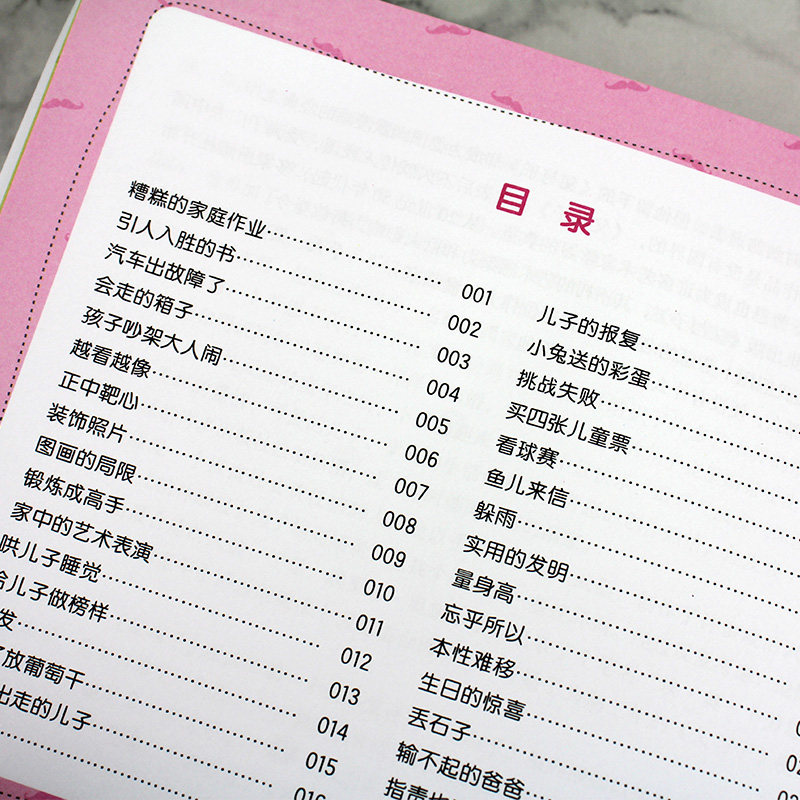 目 录
糟糕的家庭作业 001
引人入胜的书 002
汽车出故障了 003
会走的箱子 004
孩子吵架大人闹 005
越看越像 006
正中靶心 007
装饰照片 008
图画的局限 009
锻炼成高手 010
家中的艺术表演 011
哄儿子睡觉 012
给儿子做榜样 013
发 014
放葡萄干 015
出走的儿子 016
儿子的报复
小兔送的彩蛋
挑战失败
买四张儿童票
看球赛
鱼儿来信
躲雨
实用的发明
量身高
忘乎所以
本性难移
生日的惊喜
丢石子
输不起的爸爸
指责